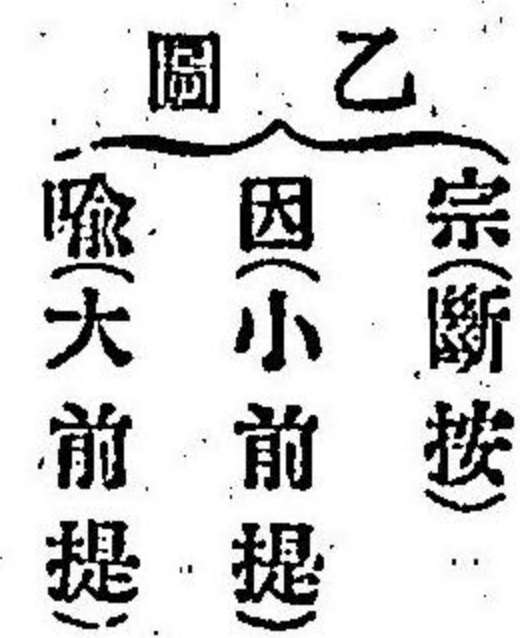 乙圖
宗(斷按)
因(小前提)
喩(大前提)